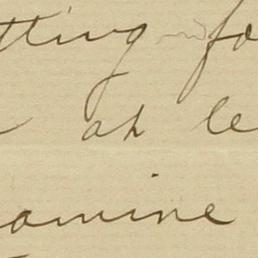 tting fo
at le
amine